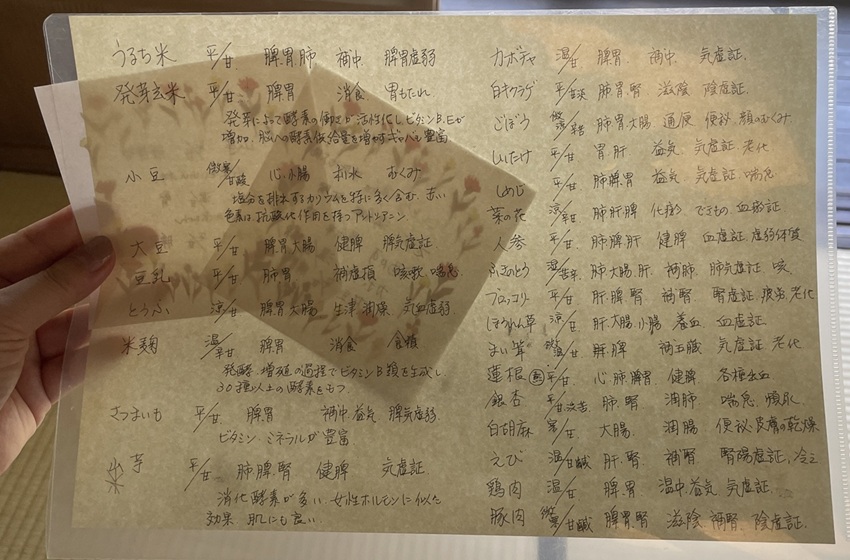 うるち米 平/甘 脾.胃.肺 補中 脾胃虚弱
発芽玄米 平/甘 脾胃 消食 胃もたれ
発芽によって酵素の働きが活性化し ビタミンB.Eが
増加. 脳への酸素供給量を増やすギャバも豊富
小豆 微寒/甘酸 心.小腸 利水 むくみ
塩分を排出するカリウムを特に多く含む. 赤い
色素は抗酸化作用を持つアントシアニン.
大豆 平/甘 脾.胃.大腸 健脾 脾気虚証.
豆乳 平/甘 肺.胃 補虚損 咳嗽.喘息
とうふ 涼/甘 脾.胃.大腸 生津 潤燥 気血虚弱.
米麹 温/辛甘 脾胃 消食 食積
発酵.増殖の過程でビタミンB類を生成し.
30種以上の酵素をもつ
さつまいも 平/甘. 脾胃 補中.益気 脾気虚弱
ビタミン.ミネラルが豊富
芋 平/甘 肺.脾.腎 健脾 気虚証
消化酵素が多い. 女性ホルモンに似た
効果 肌にも良い.
カボチャ 温/甘 脾.胃. 補中. 気虚証.
白キクラゲ 平/甘淡 肺胃.腎 滋陰 陰虚証.
ごぼう 肺.胃.大腸 通便 便秘 顔のむくみ
しいたけ 平/甘 胃.肝 益気. 気虚証.老化
しめじ 平/甘 肺脾.胃 益気 気虚証 喘息.
菜の花 涼/辛甘 肺.肝.脾 化瘀 できもの 血瘀証.
人参 平/甘 肺脾.肝 健脾 血虚証.虚弱体質
ふきのとう 温/苦辛 肺.大腸.肝. 補肺. 肺気虚証 咳.
ブロッコリー 平/甘 肝.脾.腎 補腎 腎虚証.疲労.老化
ほうれん草 涼/甘 肝.大腸.小腸 養血 血虚証.
まい茸 微温/甘 肝.脾 気虚証 老化
蓮根 平/甘. 心.肺.脾胃 健脾 各種出血
銀杏 平/甘渋苦. 肺.腎 潤肺 喘息.頻尿.
白胡麻 寒/甘 大腸. 潤腸 便秘.皮膚の乾燥
えび 温/甘鹹 肝.腎 補腎 腎陽虚証.冷え
鶏肉 温/甘 脾.胃 温中.益気 気虚証.
豚肉 微寒/甘鹹 脾.胃.腎 滋陰.補腎.陰虚証.